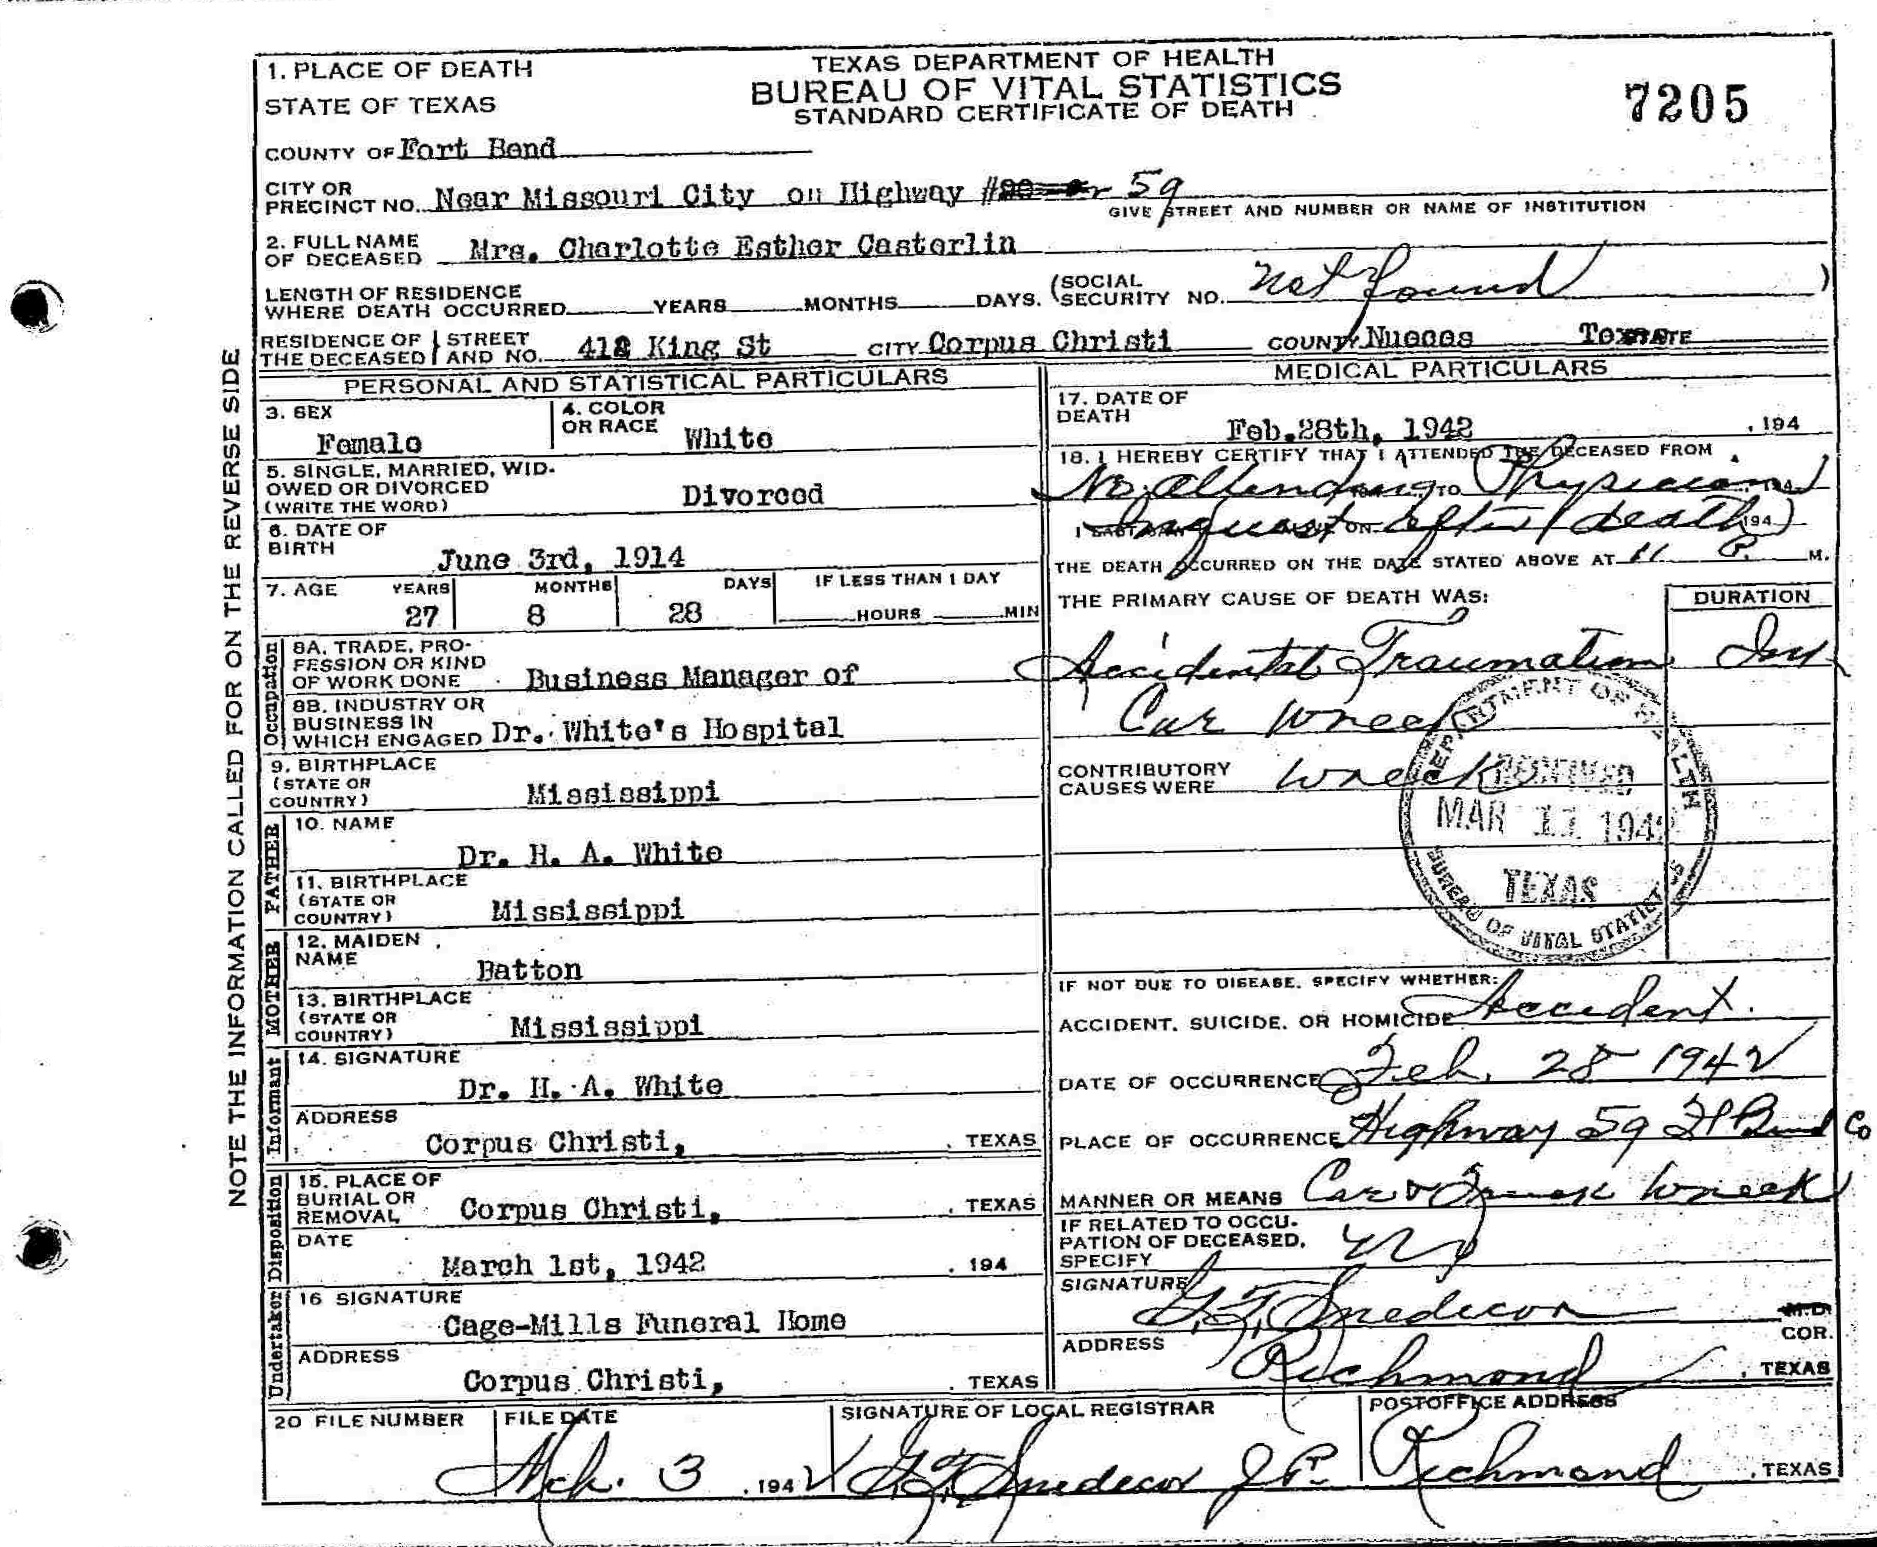 1. PLACE OF DEATH
STATE OF TEXAS
TEXAS DEPARTMENT OF HEALTH
BUREAU OF VITAL STATISTICS
STANDARD CERTIFICATE OF DEATH
7205
COUNTY OF Fort Bend
CITY OR PRECINCT NO. Near Missouri City on Highway # 59
GIVE STREET AND NUMBER OR NAME OF INSTITUTION
2. FULL NAME OF DECEASED Mrs. Charlotte Esther Casterlin
LENGTH OF RESIDENCE WHERE DEATH OCCURRED YEARS MONTHS DAYS. (SOCIAL SECURITY NO. Not Found )
RESIDENCE OF THE DECEASED STREET AND NO. 412 King St CITY Corpus Christi COUNTY Nueces Texas STATE
NOTE THE INFORMATION CALLED FOR ON THE REVERSE SIDE
PERSONAL AND STATISTICAL PARTICULARS
3. SEX Female
4. COLOR OR RACE White
5. SINGLE, MARRIED, WIDOWED OR DIVORCED (WRITE THE WORD) Divorced
6. DATE OF BIRTH June 3rd, 1914
7. AGE YEARS 27 MONTHS 8 DAYS 28 IF LESS THAN 1 DAY HOURS MIN
Occupation
8A. TRADE, PROFESSION OR KIND OF WORK DONE Business Manager of
8B. INDUSTRY OR BUSINESS IN WHICH ENGAGED Dr. White's Hospital
9. BIRTHPLACE (STATE OR COUNTRY) Mississippi
FATHER
10. NAME Dr. H. A. White
11. BIRTHPLACE (STATE OR COUNTRY) Mississippi
MOTHER
12. MAIDEN NAME Batton
13. BIRTHPLACE (STATE OR COUNTRY) Mississippi
Informant
14. SIGNATURE Dr. H. A. White
ADDRESS Corpus Christi, TEXAS
Disposition
15. PLACE OF BURIAL OR REMOVAL Corpus Christi, TEXAS
DATE March 1st, 1942 , 194
Undertaker
16 SIGNATURE Cage-Mills Funeral Home
ADDRESS Corpus Christi, TEXAS
MEDICAL PARTICULARS
17. DATE OF DEATH Feb.28th, 1942 , 194
18. I HEREBY CERTIFY THAT I ATTENDED THE DECEASED FROM
No attending Physician
Inquest after death 194
THE DEATH OCCURRED ON THE DATE STATED ABOVE AT 11 P. M.
THE PRIMARY CAUSE OF DEATH WAS: DURATION
Accidental Traumatism
Car Wreck
CONTRIBUTORY CAUSES WERE Wreck
DEPARTMENT OF HEALTH
RECEIVED
MAR 11 1942
TEXAS
BUREAU OF VITAL STATISTICS
IF NOT DUE TO DISEASE, SPECIFY WHETHER:
ACCIDENT, SUICIDE, OR HOMICIDE Accident.
DATE OF OCCURRENCE Feb. 28 1942
PLACE OF OCCURRENCE Highway 59 Ft Bend Co
MANNER OR MEANS Car & Truck Wreck
IF RELATED TO OCCUPATION OF DECEASED, SPECIFY No
SIGNATURE G. F. Snedecor M.D. COR.
ADDRESS Richmond , TEXAS
20 FILE NUMBER
FILE DATE Mch. 3 , 1942
SIGNATURE OF LOCAL REGISTRAR G F Snedecor J P.
POSTOFFICE ADDRESS Richmond , TEXAS